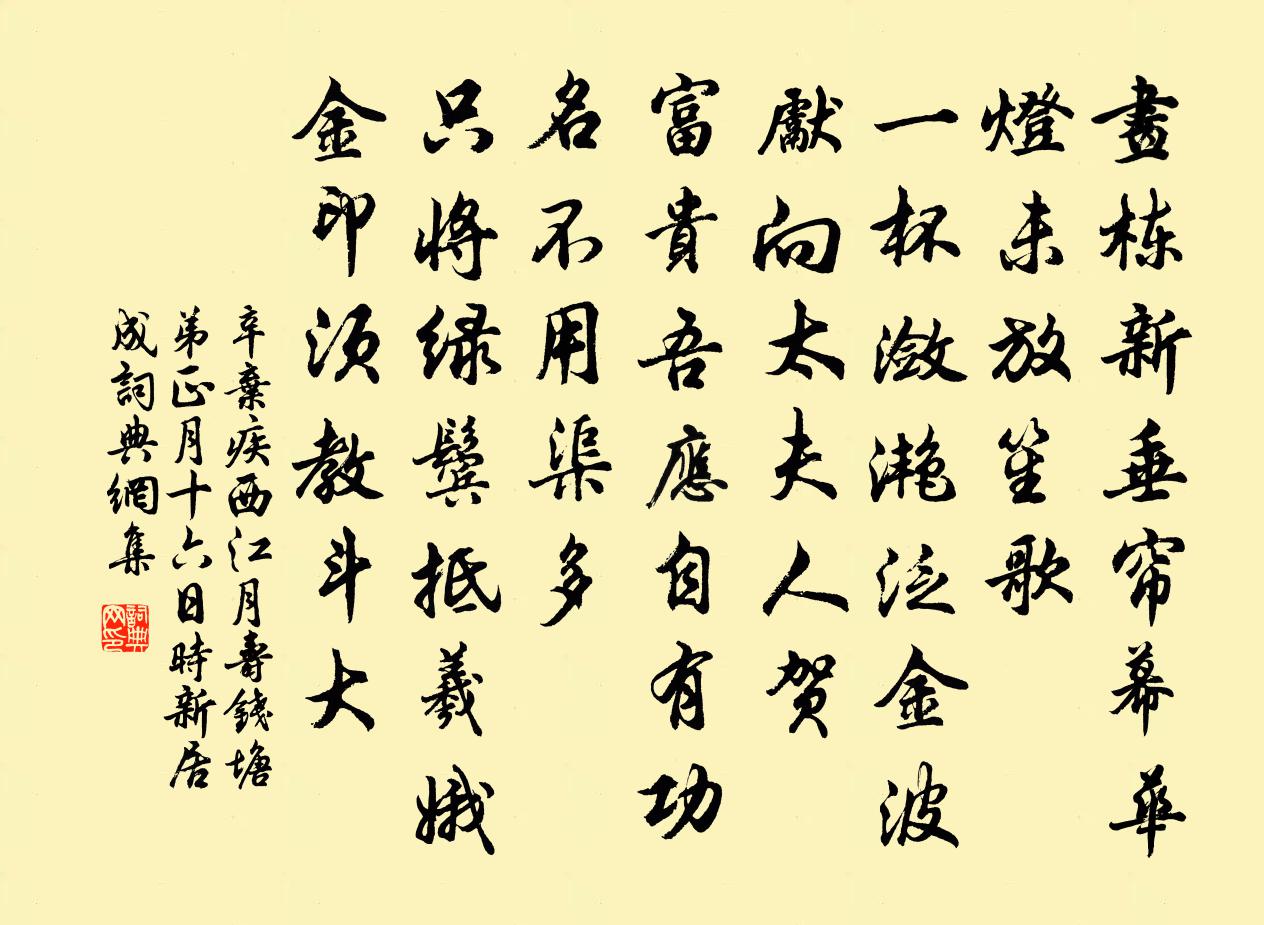 畫栋新垂帘幕華
燈未放笙歌
一杯瀲滟泛金波
獻向太夫人贺
富貴吾應自有功
名不用渠多
只將绿鬓抵羲娥
金印须教斗大
辛棄疾西江月壽錢塘
弟正月十六日時新居
成詞典網集
詞典
网印